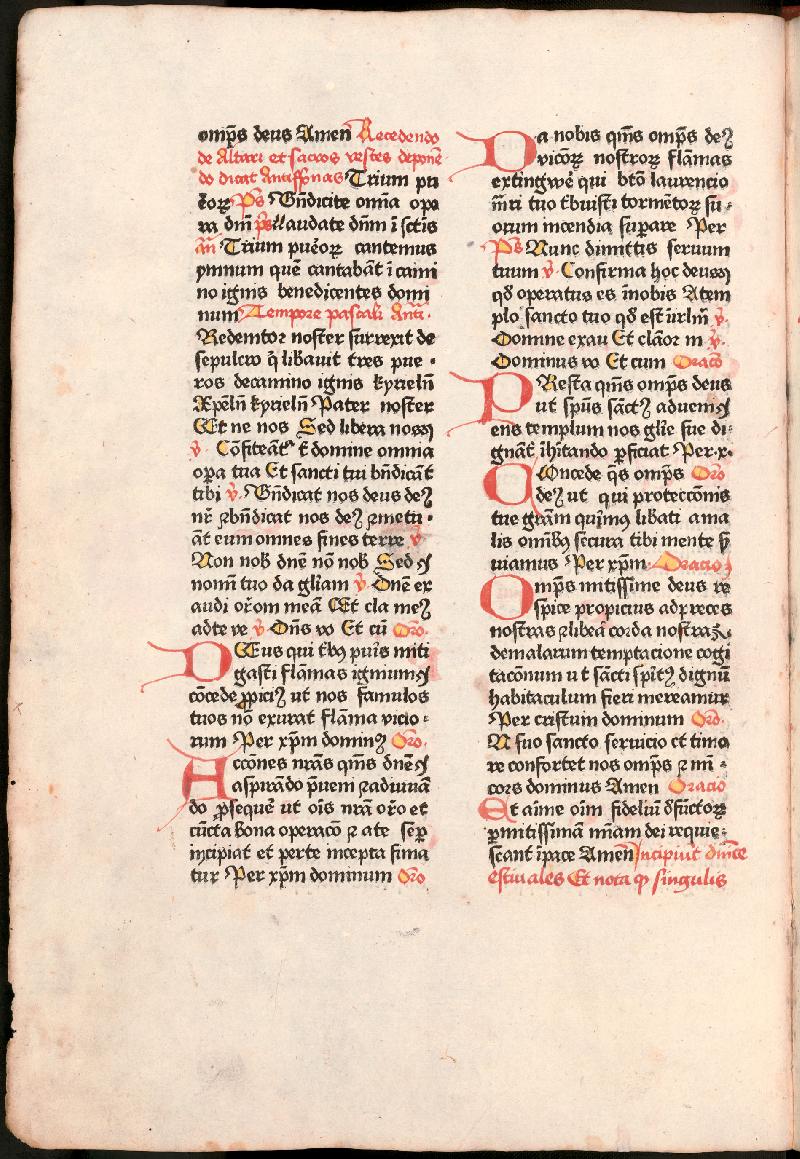 omp̄s deus Amen Recedendo
de Altari et sacros vestes deponē
do dicat Antiffonas Trium pu
ẽorꝝ Ps Bñdicite om̄a opa
ra dm̄ ps laudate dn̄m ī sc̄tis
an̄ Trium puẽorꝝ cantemus
ymnum quē cantabāt ī cami
no ignis benedicentes domi
num Tempore pascali Anti.
Redemtor noster surrexit de
sepulcro q̄ libauit tres pue
ros decamino ignis kyrieln̄
Xpeln̄ kyrieln̄ Pater noster
Et ne nos Sed libera nos
v̄ Cōfiteāt t̄ domine omnia
opa tua Et sancti tui bn̄dicāt
tibi v̄ Bn̄dicat nos deus deꝰ
nr̄ ꝛbn̄dicat nos deꝰ ꝛmetu
āt eum omnes fines terre v̄
Non nob̄ dnē nō nob̄ Sed
nomī tuo da gl̄iam v̄ Dnē ex
audi or̄om meā Et cla meꝰ
adte ve v̄ Dn̄s vo Et cū Oro
DEus qui tͥbꝫ puīs miti
gasti flāmas ignium
cōcede ꝓpiciꝰ ut nos famulos
tuos nō exurat flāma vicio
rum Per xp̄m dominꝫ Oro
Accōnes nr̄as qm̄s dnē
aspirādo p̄ueni ꝛadiuuā
do ꝓsequē ut oīs nr̄a or̄o et
cūcta bona operacō ꝛ ate sēp
incipiat et perte incepta finia
tur Per xp̄m dominum Oro
Da nobis qm̄s omp̄s deꝰ
vicorꝝ nostrorꝝ flāmas
extingwē qui btō laurencio
m̄ri tuo tͥbuisti tormētorꝝ su
orum incendia suꝑare Per
Ps Nunc dimittis seruum
tuum v̄ Confirma hoc deus
qd̄ operatus es īnobis Atem
plo sancto tuo qd̄ est īirlm̄ v̄
Domine exau Et clāor m v̄
Dominus vo Et cum Oracō
PResta qm̄s omp̄s deus
ut sp̄us sāctꝰ adueni
ens templum nos gl̄ie sue di
gnāt̄ īhītando ꝑficiat Per.x.
COncede q̄s omp̄s Oro
deꝰ ut qui proteccōnis
tue grām quīmꝰ libati a ma
lis omībꝫ secura tibi mente ẜ
uiamus Per xp̄m Oracio
Omp̄s mitissime deus re
spice propicius adp̄reces
nostras ꝛlibeā corda nostra
demalarum temptacione cogi
tacōnum ut sācti sp̄itꝰ dignū
habitaculum fieri mereamur
Per cristum dominum Oro.
A suo sancto seruicio et timo
re confortet nos omp̄s ꝛ mī
cors dominus Amen Oracio
Et aīme oīm fideliū dfūctorꝝ
ꝑmitissimā mīam dei requie
scant īpace Amen Incipiūt dnīce
estiuales Et nota ꝙ singulis